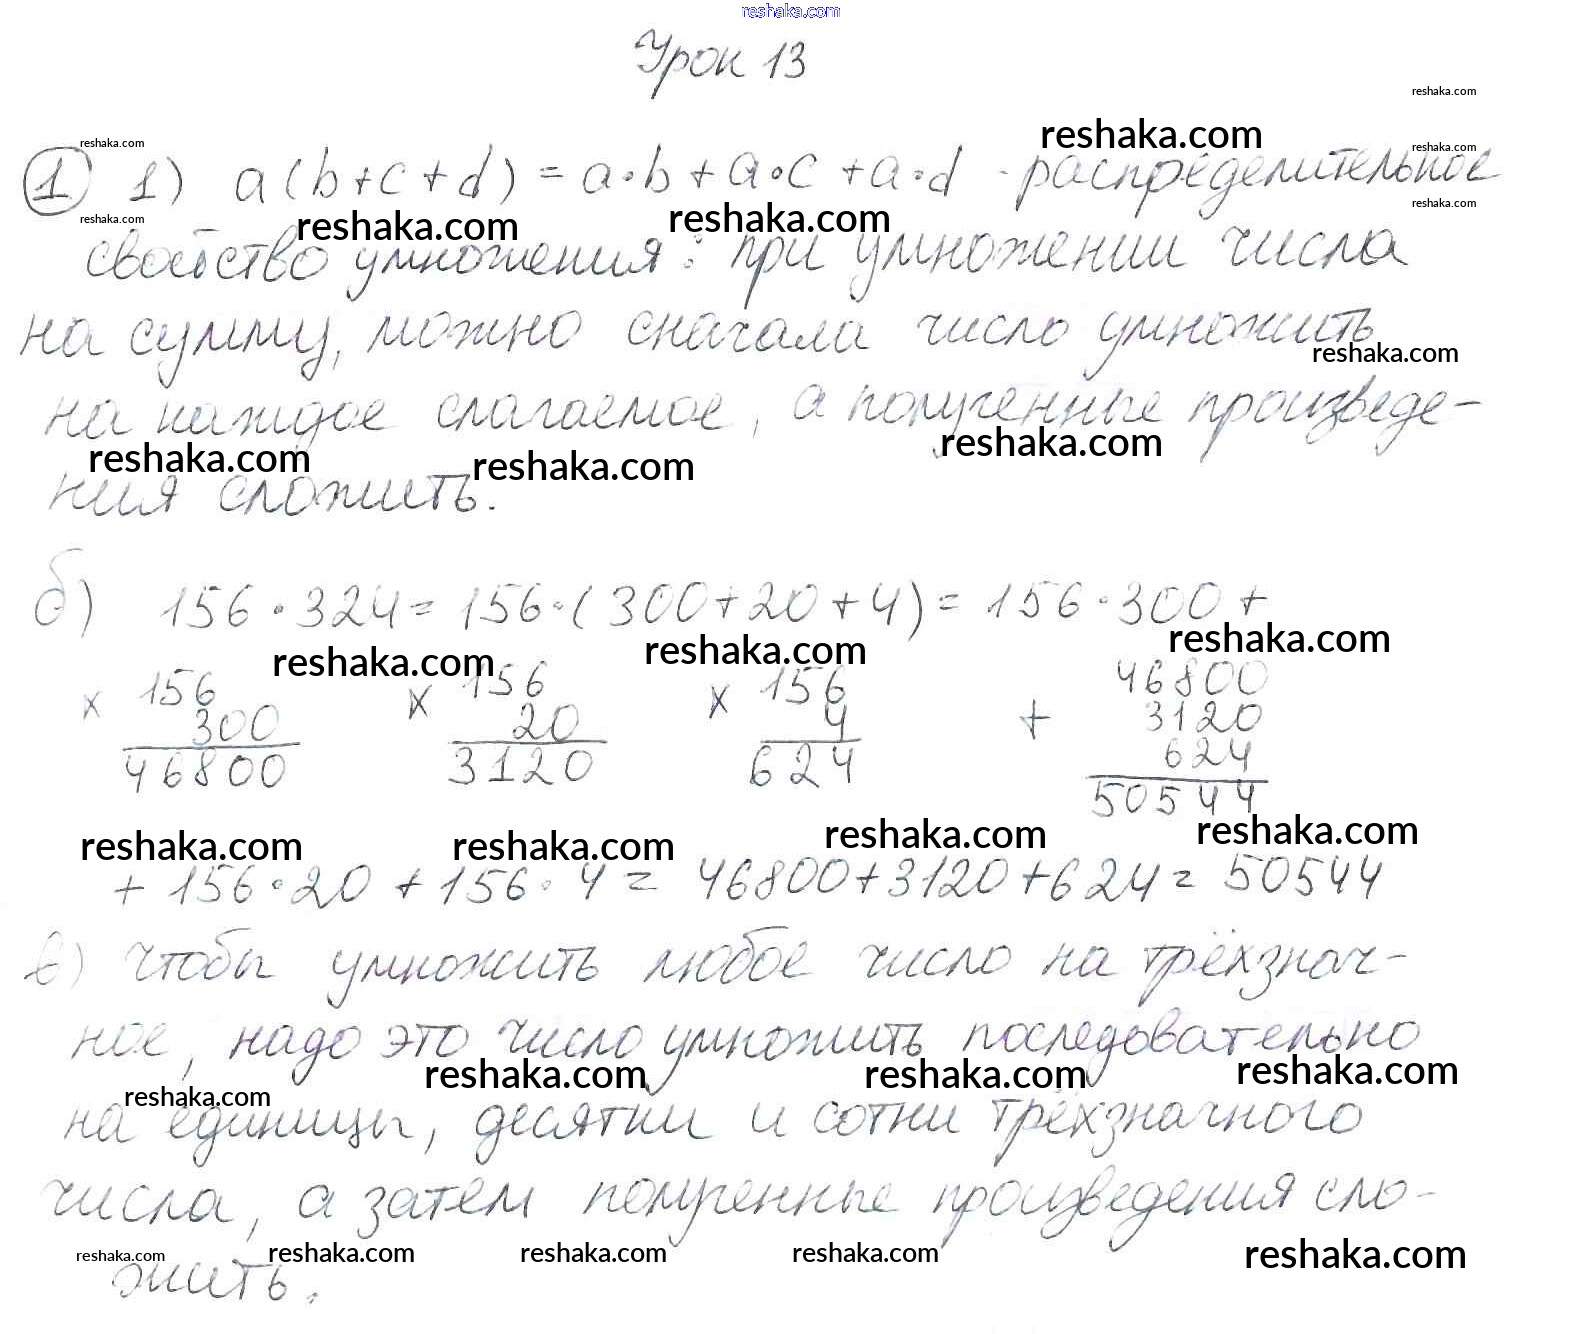 reshaka.com
Урок 13
reshaka.com
reshaka.com
reshaka.com
reshaka.com
① 1) a(b+c+d) = a·b+a·c+a·d - распределительное
reshaka.com
reshaka.com
reshaka.com
reshaka.com
свойство умножения: при умножении числа
на сумму, можно сначала число умножить
reshaka.com
на каждое слагаемое, а полученные произведе-
reshaka.com
reshaka.com
reshaka.com
ния сложить.
б) 156·324=156·(300+20+4)=156·300+
reshaka.com
reshaka.com
reshaka.com
x 156 x 156 x 156 + 46800
300 20 4 3120
46800 3120 624 624
50544
reshaka.com
reshaka.com
reshaka.com
reshaka.com
+156·20+156·4= 46800+3120+624= 50544
в) чтобы умножить любое число на трёхзнач-
ное, надо это число умножить последовательно
reshaka.com
reshaka.com
reshaka.com
reshaka.com
на единицы, десятки и сотни трёхзначного
числа, а затем полученные произведения сло-
reshaka.com
reshaka.com
reshaka.com
reshaka.com
reshaka.com
жить.